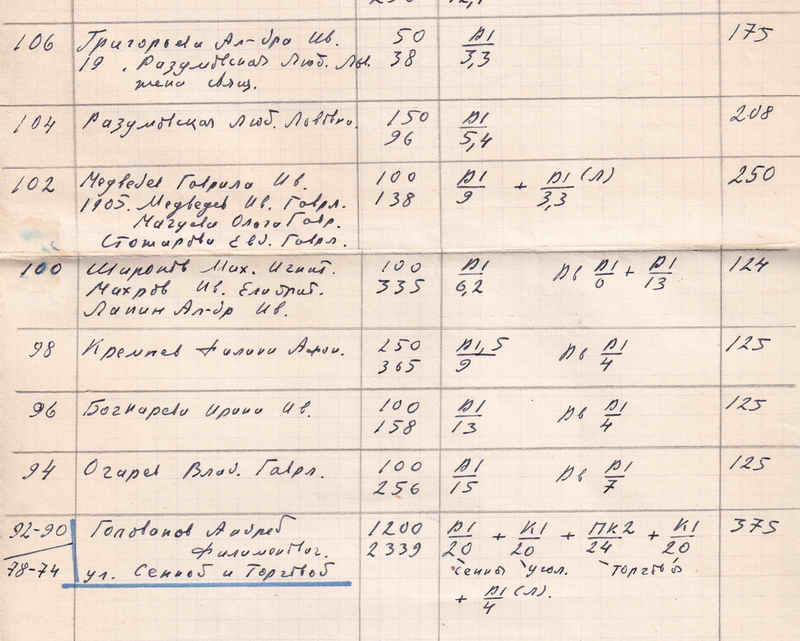 106 Григорьева Ал-дра Ив. 50 Д1 175
19 . Разумовская Люб. Льв. 38 3,3
жена свящ.
104 Разумовская Люб. Львовна. 150 Д1 208
96 5,4
102 Медведев Гаврила Ив. 100 Д1 + Д1 (Л) 250
1905. Медведев Ив. Гаврл. 138 9 3,3
Магуева Ольга Гавр.
Стожарова Евд. Гаврл.
100 Широков Мих. Игнат. 100 Д1 Дв Д1 + Д1 124
Махров Ив. 335 6,2 0 13
Лапин Ал-др Ив.
98 Кремнев Филипп 250 Д1,5 Дв Д1 125
365 9 4
96 Бочкарева Ирина Ив. 100 Д1 Дв Д1 125
158 13 4
94 Огарев Влад. Гаврл. 100 Д1 Дв Д1 125
256 15 7
92-90 Голованов Андрей 1200 Д1 + К1 + ПК2 + К1 375
Филимонович. 2339 20 20 24 20
78-74 ул. Сенной и Торговой Сенны угол. Торговой
+ Д1 (Л).
4